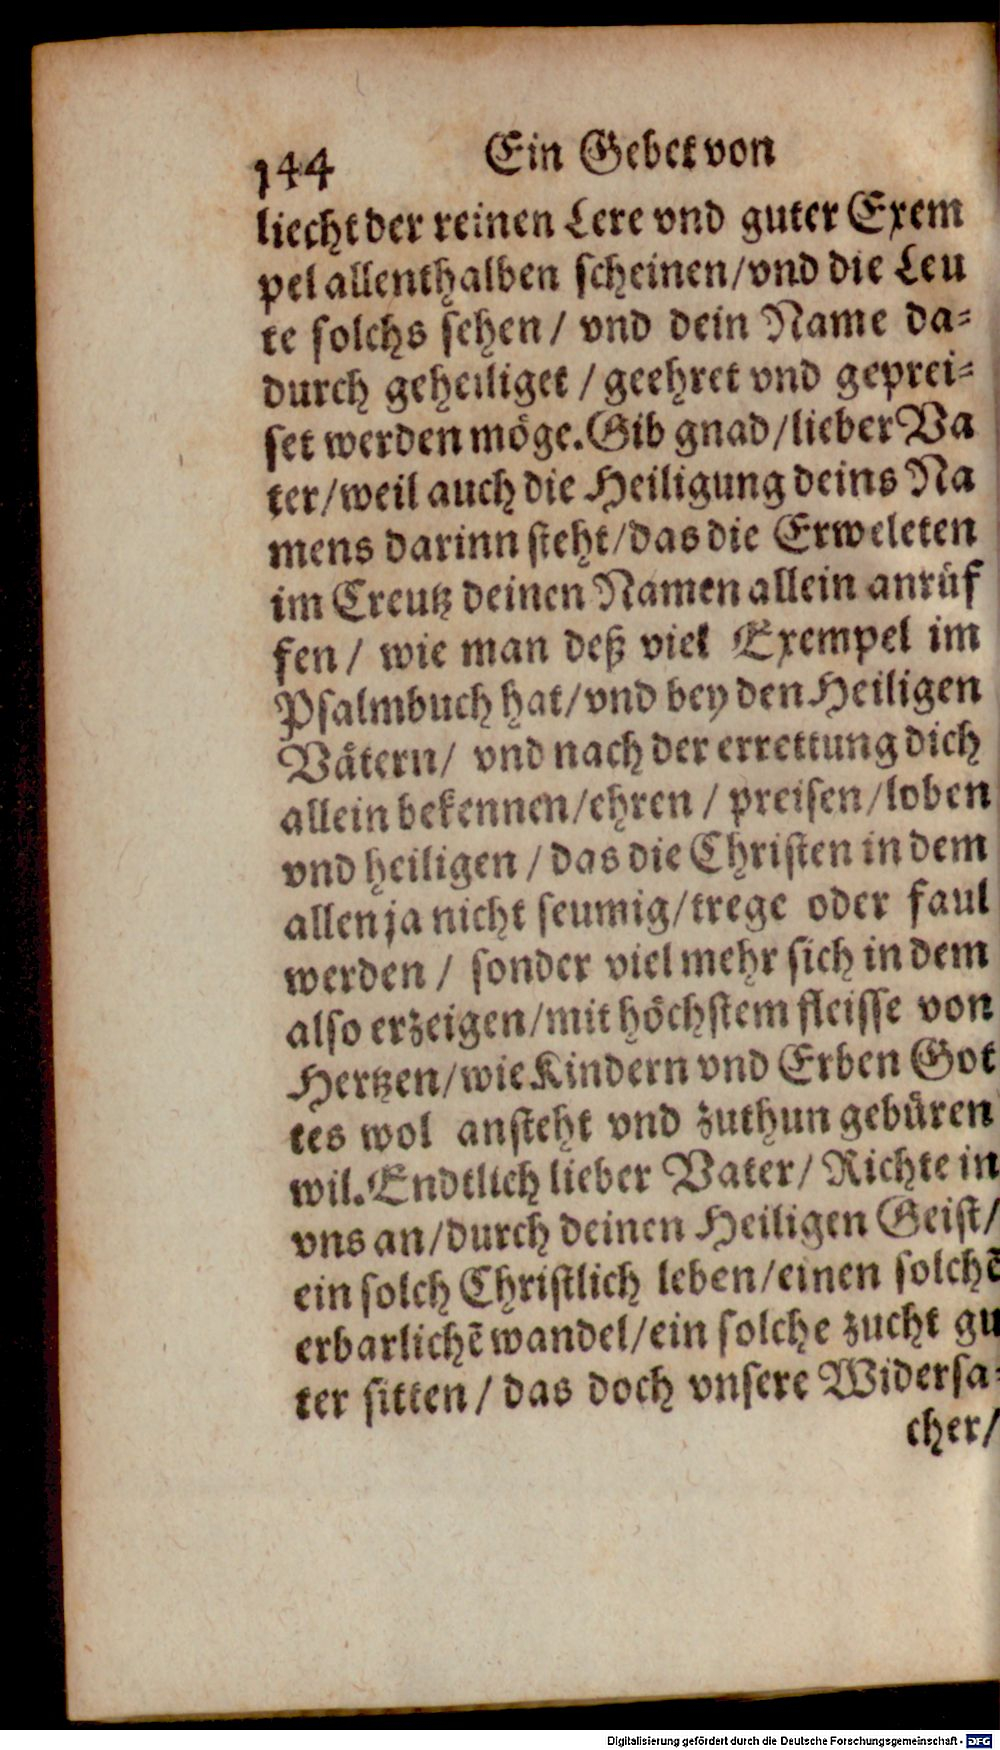 144 Ein Gebet von
liecht der reinen Lere vnd guter Exem
pel allenthalben scheinen/vnd die Leu
te solchs sehen/ vnd dein Name da⸗
durch geheiliget /geehret vnd geprei⸗
set werden möge. Gib gnad/lieber Va
ter/weil auch die Heiligung deins Na
mens darinn steht/das die Erweleten
im Creutz deinen Namen allein anrüf
fen/ wie man deß viel Exempel im
Psalmbuch hat/vnd bey den Heiligen
Vätern/ vnd nach der errettung dich
allein bekennen/ehren / preisen/loben
vnd heiligen /das die Christen in dem
allen ja nicht seumig/trege oder faul
werden / sonder viel mehr sich in dem
also erzeigen/mit höchstem fleisse von
Hertzen/wie Kindern vnd Erben Got
tes wol ansteht vnd zuthun gebüren
wil. Endtlich lieber Vater/ Richte in
vns an/durch deinen Heiligen Geist/
ein solch Christlich leben/einen solchẽ
erbarlichẽ wandel/ein solche zucht gu
ter sitten/ das doch vnsere Widersa⸗
cher/
Digitalisierung gefördert durch die Deutsche Forschungsgemeinschaft - DFG